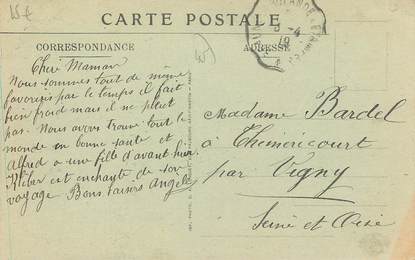 CARTE POSTALE
CORRESPONDANCE
ADRESSE
Chère Maman
Nous sommes tout de même
favorisés par le temps il fait
bien froid mais il ne pleut
pas. Nous avons trouvé tout le
monde en bonne santé et
Alfred a une fille d'avant hier
Kléber est enchanté de son
voyage Bons baisers Angèle
Madame Bardel
à Théméricourt
par Vigny
Seine et Oise